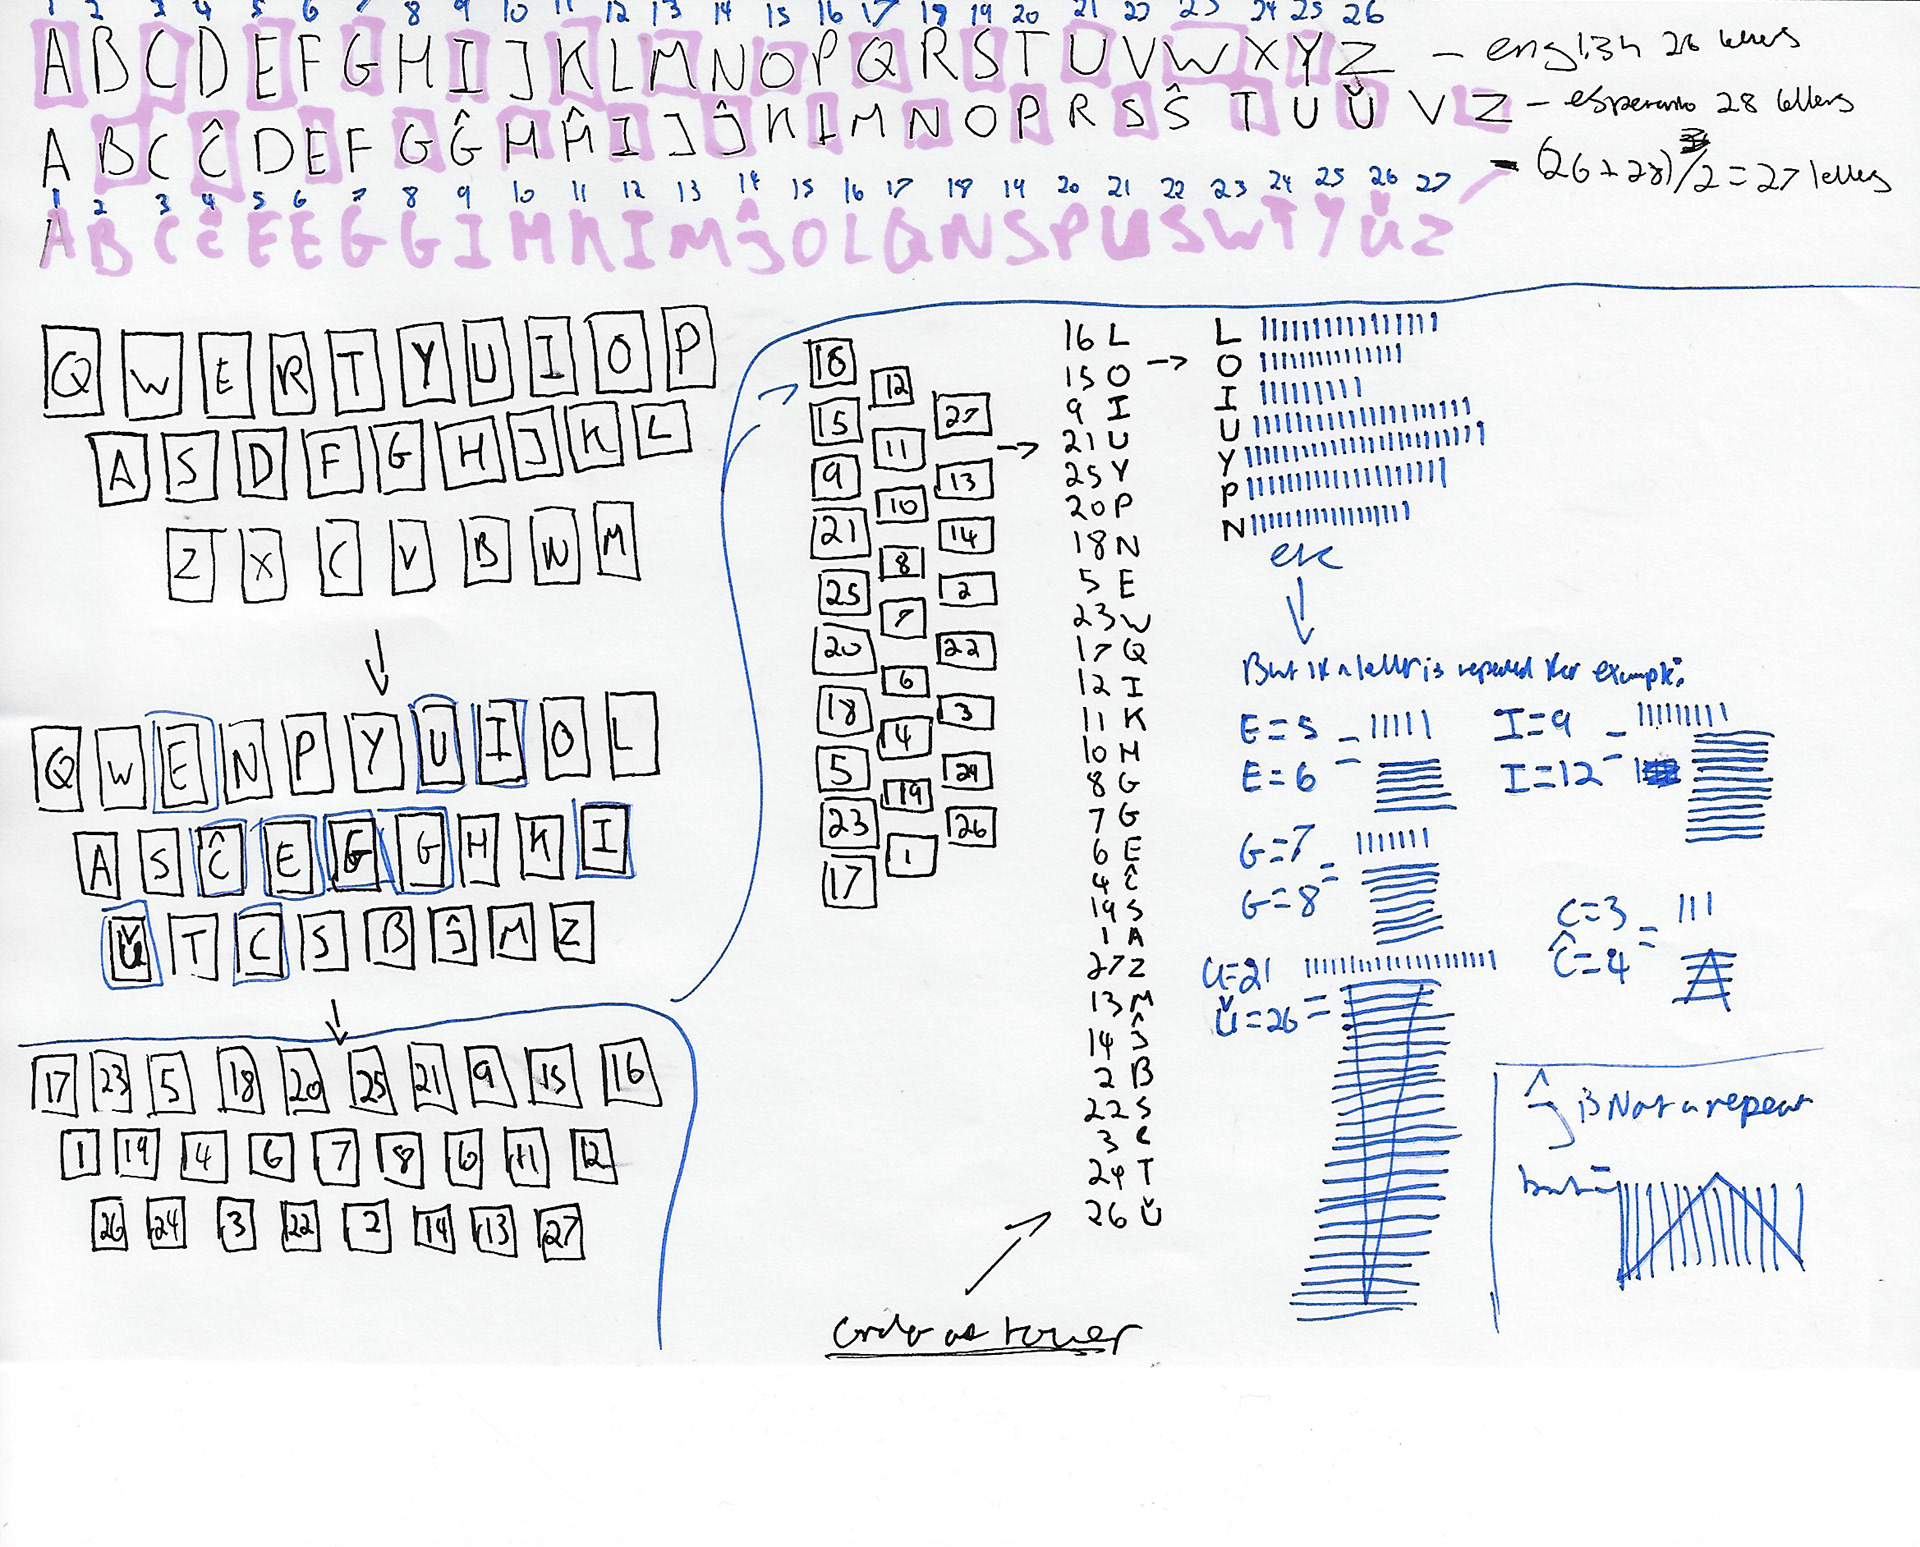 1 2 3 4 5 6 7 8 9 10 11 12 13 14 15 16 17 18 19 20 21 22 23 24 25 26
A B C D E F G H I J K L M N O P Q R S T U V W X Y Z - english 26 letters
A B C Ĉ D E F G Ĝ H Ĥ I J Ĵ K L M N O P R S Ŝ T U Ŭ V Z - esperanto 28 letters
= (26+28)/2 = 27 letters
1 2 3 4 5 6 7 8 9 10 11 12 13 14 15 16 17 18 19 20 21 22 23 24 25 26 27
A B C Ĉ E E G G I H K I M Ĵ O L Q N S P U S W T Y Ŭ Z
Q W E R T Y U I O P
A S D F G H J K L
Z X C V B N M
Q W E N P Y U I O L
A S Ĉ E G G H K I
Ŭ T C S B Ĵ M Z
17 23 5 18 20 25 21 9 15 16
1 19 4 6 7 8 6 11 12
26 24 3 22 2 14 13 27
16
15
9
21
25
20
18
5
23
17
12
11
10
8
7
6
4
19
1
27
13
14
2
22
3
24
26
→
16 L
15 O →
9 I
21 U
25 Y
20 P
18 N
5 E
23 W
17 Q
12 I
11 K
10 H
8 G
7 G
6 E
4 Ĉ
19 S
1 A
27 Z
13 M
14 Ĵ
2 B
22 S
3 C
24 T
26 Ŭ
order as tower
L
O
I
U
Y
P
N
etc
But if a letter is repeated for example:
E=5 -
E=6 -
I=9 -
I=12 -
G=7
G=8 =
C=3
Ĉ=4 =
U=21
Ŭ=26 =
Ĵ is Not a repeat
but =